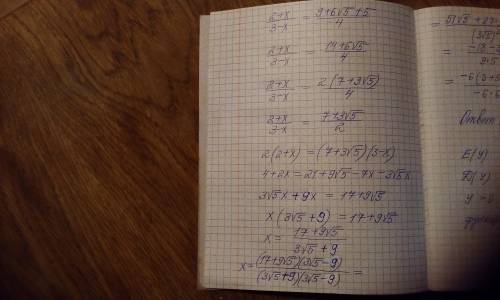 (2+x)/(3-x) = (9+6√5+5)/4
(2+x)/(3-x) = (14+6√5)/4
(2+x)/(3-x) = 2(7+3√5)/4
(2+x)/(3-x) = (7+3√5)/2
2(2+x)=(7+3√5)(3-x)
4+2x=21+9√5-7x-3√5x
3√5x+9x = 17+9√5
x(3√5+9)=17+9√5
x = (17+9√5)/(3√5+9)
x = (17+9√5)(3√5-9)/(3√5+9)(3√5-9) =
Ответ
E(y)
D(y)
y